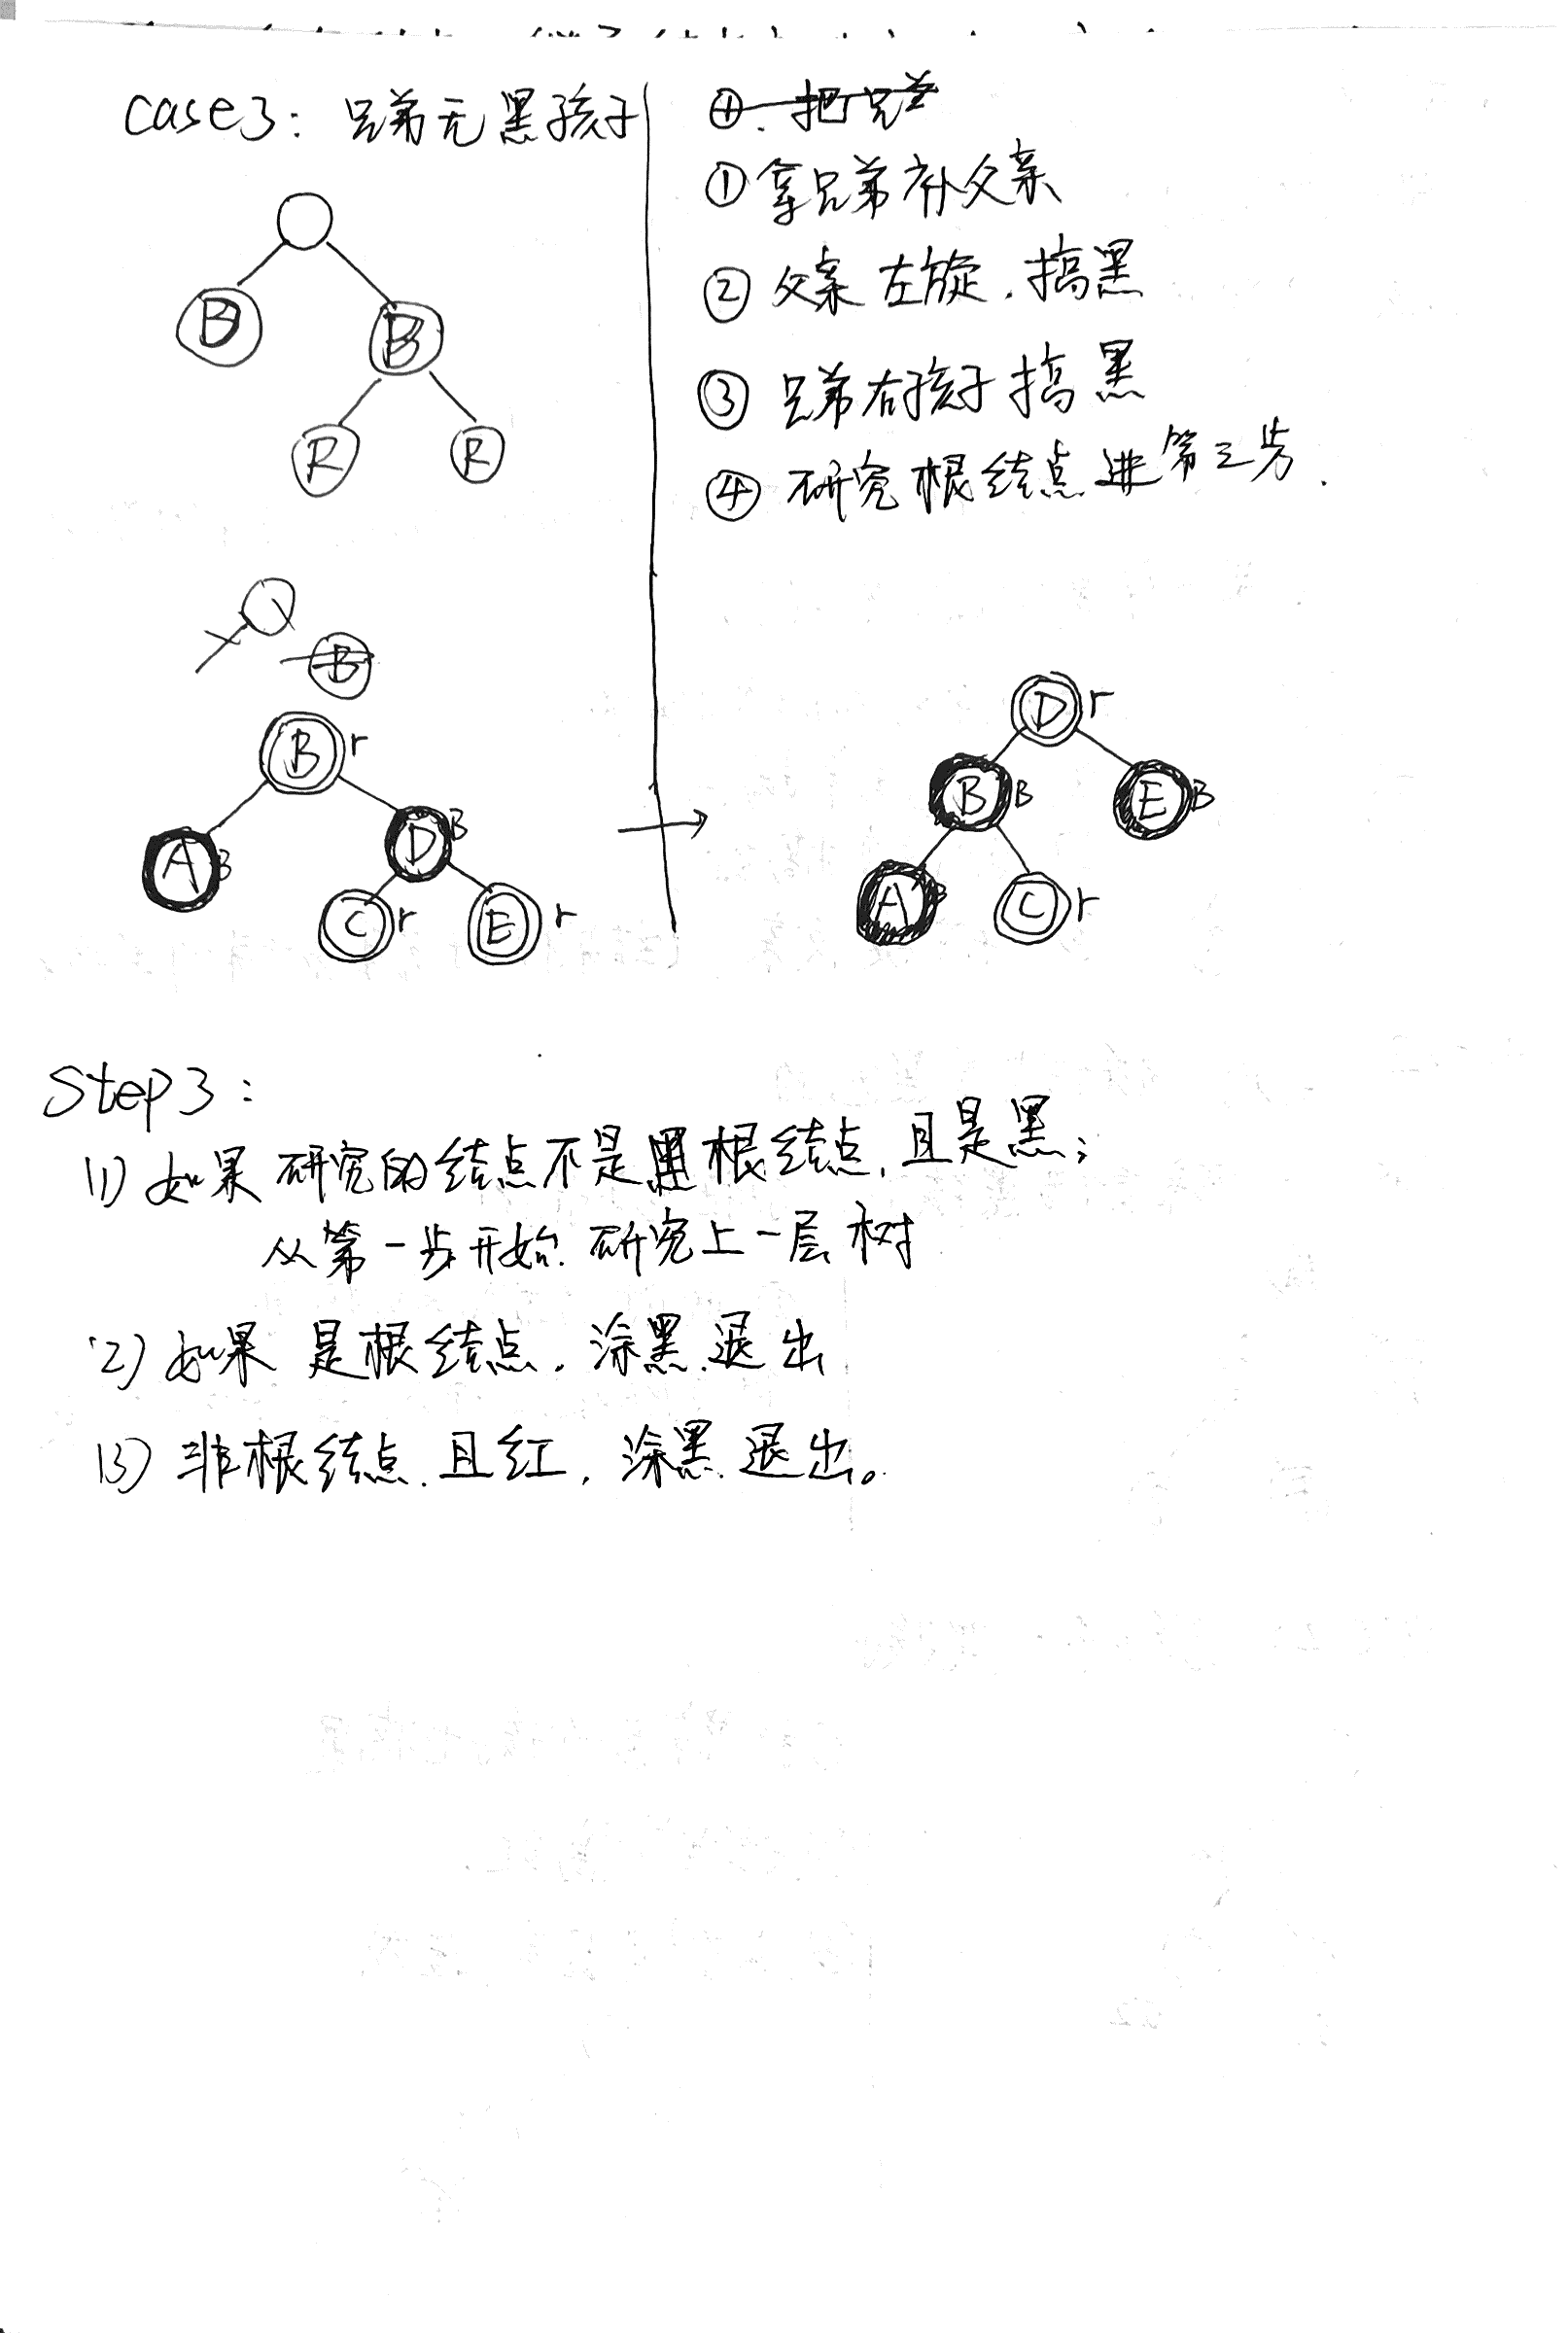 case3: 兄弟无黑孩子
B
B
R
R
④. 把兄弟
① 拿兄弟补父亲
② 父亲左旋.搞黑
③ 兄弟右孩子搞黑
④ 研究根结点进第三步.
B
B r
A B
D B
C r
E r
→
D r
B B
E B
A B
C r
Step3:
(1) 如果研究的结点不是根结点,且是黑;
从第一步开始.研究上一层树
(2) 如果是根结点,涂黑.退出
(3) 非根结点.且红,涂黑.退出。